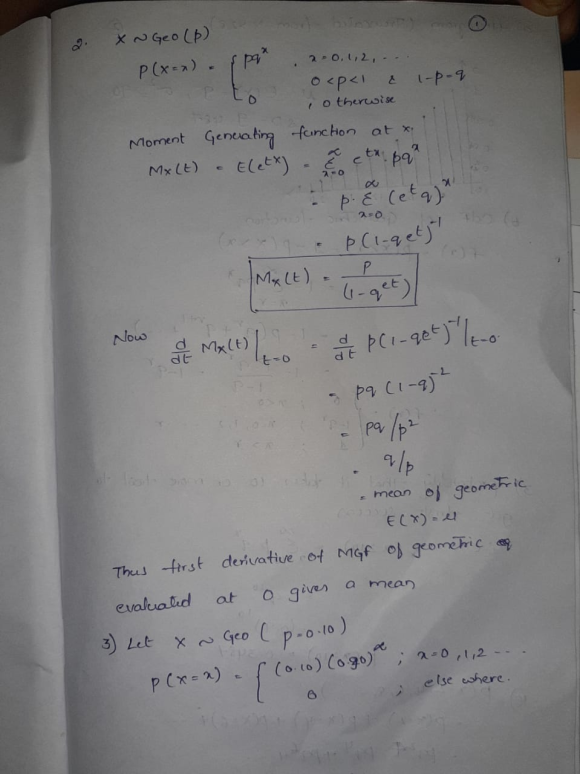 ①
2. X ~ Geo (p)
P(X=x) = { pq^x , x=0,1,2, ...
0<p<1 & 1-p=q
0 ; otherwise
Moment Generating function at x,
Mx(t) = E(e^tx) = Σ_{x=0}^{∝} e^tx . pq^x
= p. Σ_{x=0}^{∝} (e^t q)^x
= p(1-qe^t)^-1
Mx(t) = p / (1-qe^t)
Now d/dt Mx(t)|t=0 = d/dt p(1-qe^t)^-1|t=0
= pq (1-q)^-2
= pq/p^2
= q/p
= mean of geometric
E(X) = μ
Thus first derivative of MGF of geometric
evaluated at 0 gives a mean
3) Let X ~ Geo ( p=0.10)
P(X=x) = { (0.10) (0.90)^x ; x=0,1,2 ...
0 ; else where.